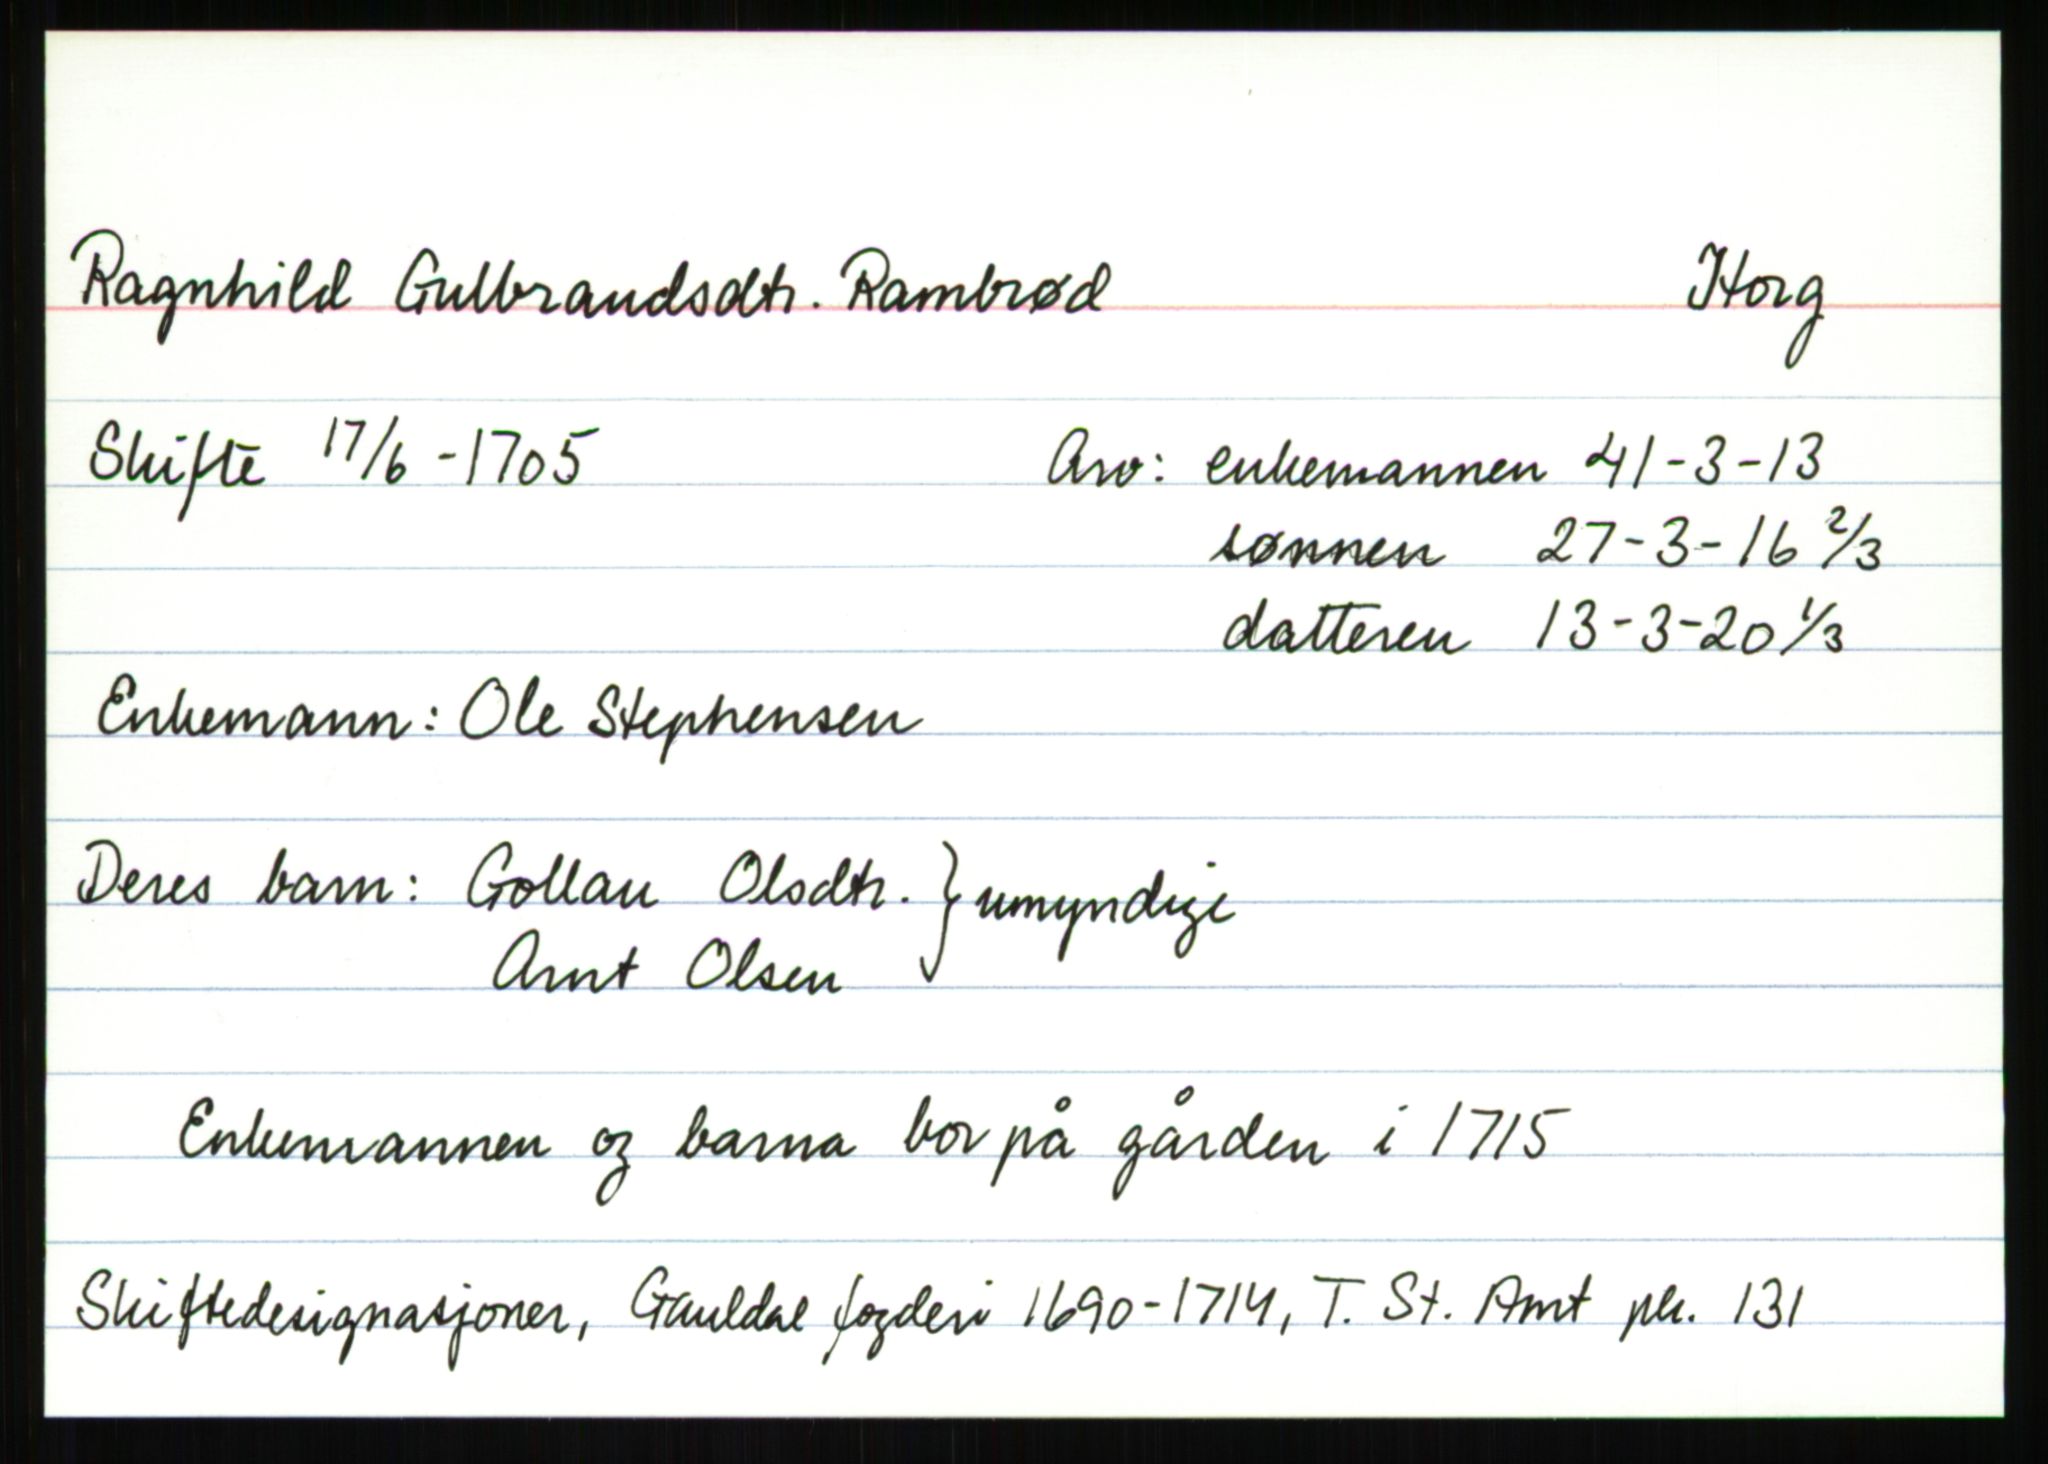 Ragnhild Gulbrandsdtr. Rambrød Horg
Skifte 17/6 - 1705 Arv: enkemannen 41-3-13
sønnen 27-3-16 2/3
datteren 13-3-20 1/3
Enkemann: Ole Stephensen
Deres barn: Gollau Olsdtr. } umyndige
Arnt Olsen
Enkemannen og barna bor på gården i 1715
Skiftedesignasjoner, Gauldal fogderi 1690-1714, T. St. Amt pk. 131